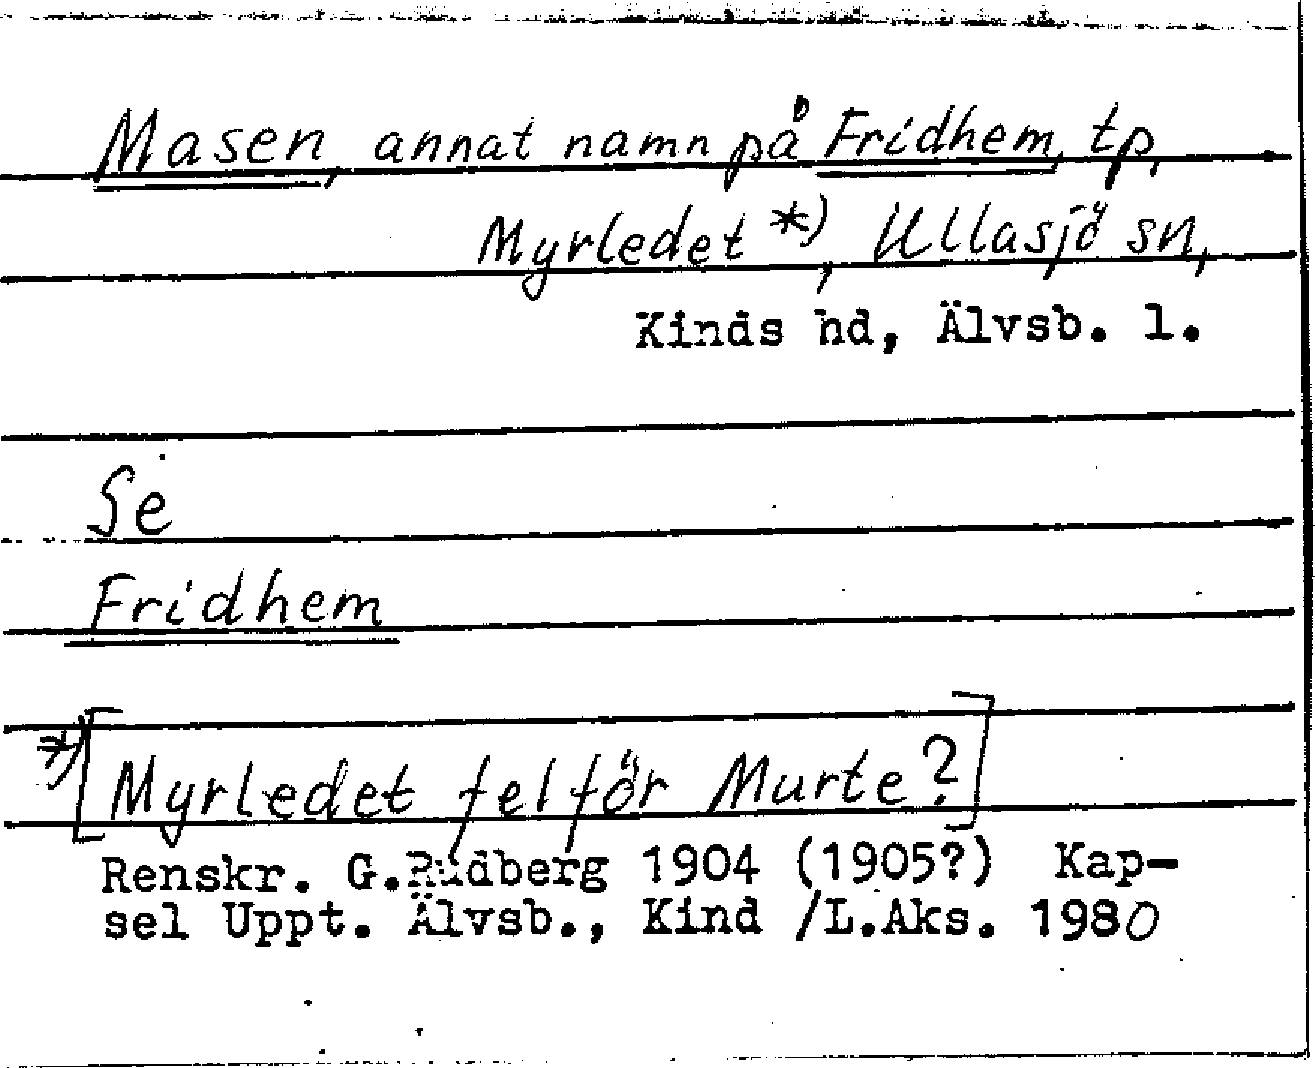 Masen, annat namn på Fridhem, tp,
Myrledet *), Ullasjö sn,
Kinds hd, Älvsb. l.
Se
Fridhem
*) [Myrledet fel för Murte?]
Renskr. G.Rudberg 1904 (1905?) Kap-
sel Uppt. Älvsb., Kind /L.Aks. 1980